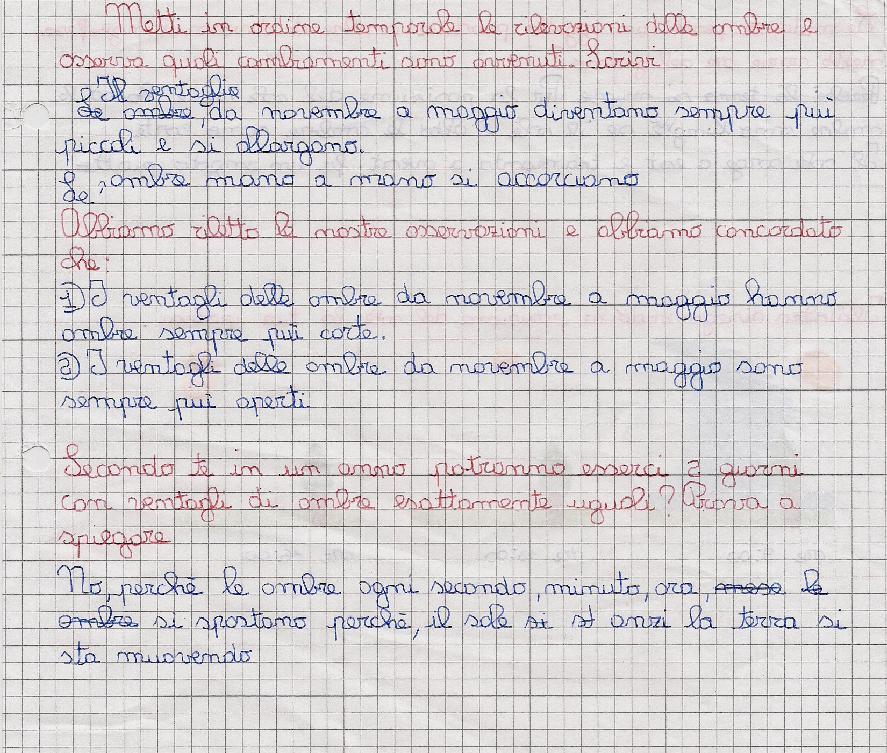 Metti in ordine temporale le rilevazioni delle ombre e
osserva quali cambiamenti sono avvenuti. Scrivi
Il ventaglio
Le ombre, da novembre a maggio diventano sempre pui
piccoli e si allargano.
Le ombre mano a mano si accorciano
Abbiamo riletto le nostre osservazioni e abbiamo concordato
che:
1) I ventagli delle ombre da novembre a maggio hanno
ombre sempre più corte.
2) I ventagli delle ombre da novembre a maggio sono
sempre pui aperti.
Secondo te in un anno potranno esserci 2 giorni
con ventagli di ombre esattamente uguali? Prova a
spiegare
No, perché le ombre ogni secondo, minuto, ora, le
ombre si spostano perché, il sole si st anzi la terra si
sta muovendo